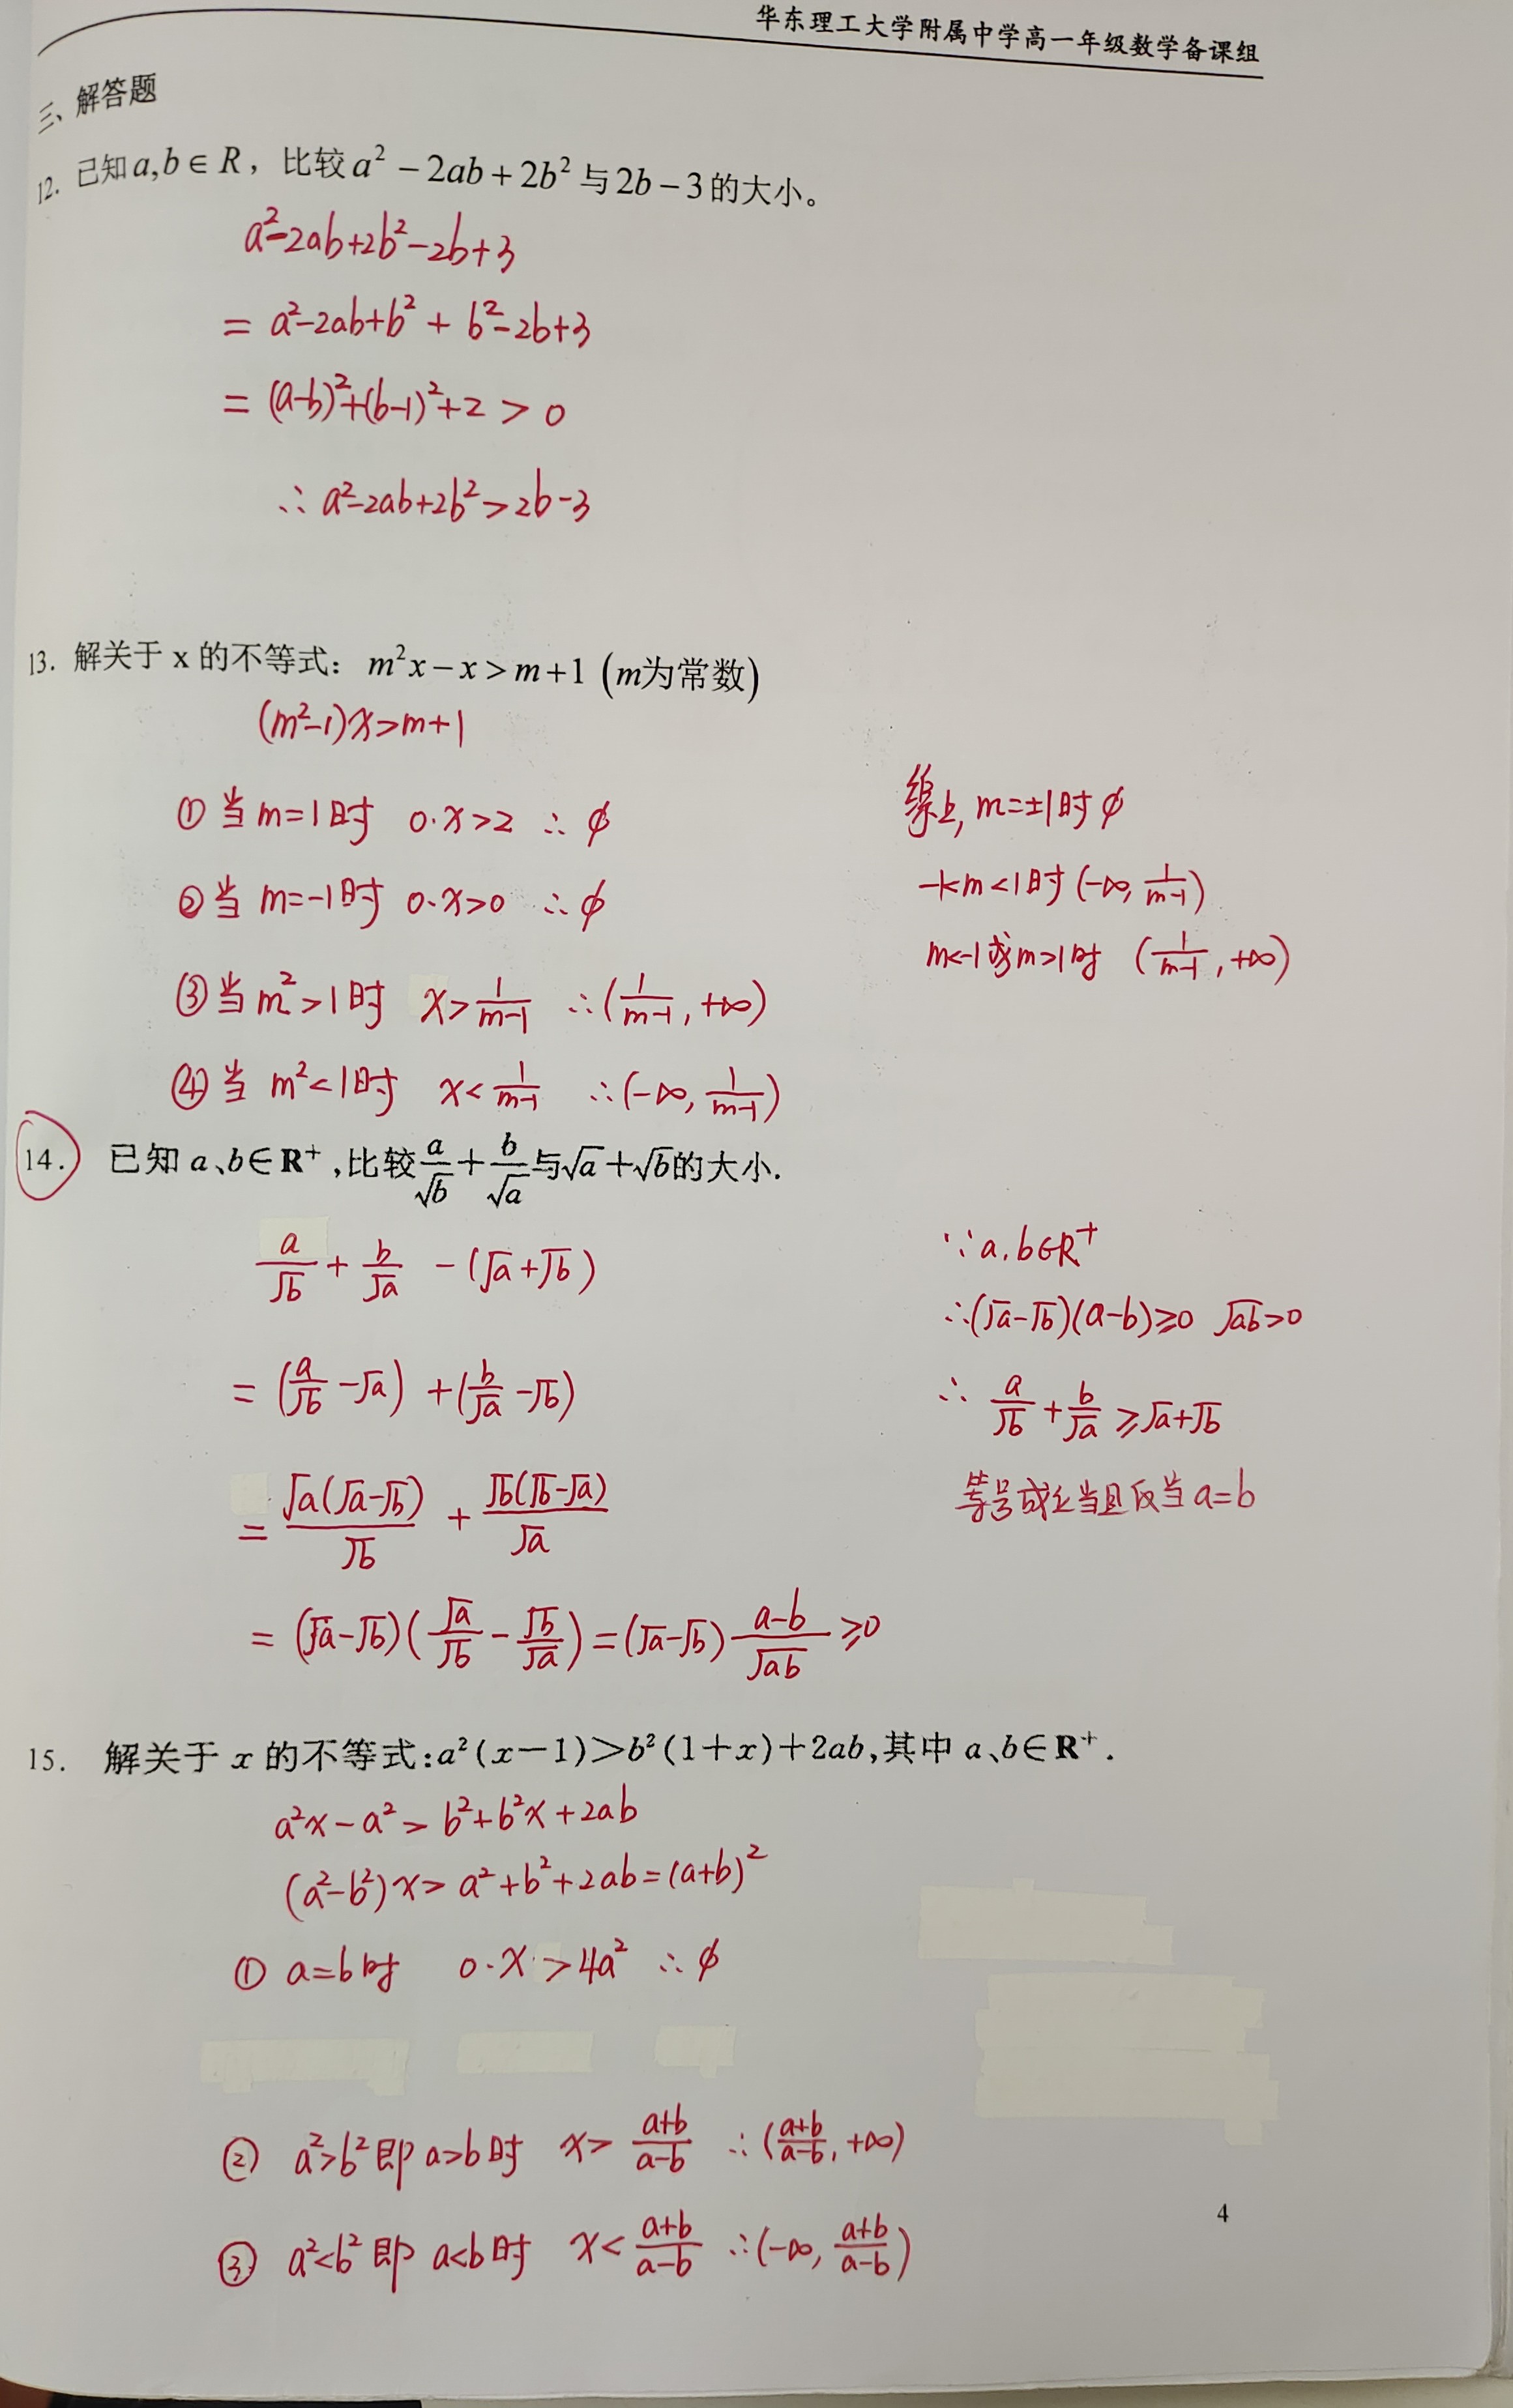 华东理工大学附属中学高一年级数学备课组
三、解答题
12. 已知a,b∈R，比较a²－2ab+2b²与2b－3的大小。
a²-2ab+2b²-2b+3
= a²-2ab+b² + b²-2b+3
= (a-b)²+(b-1)²+2 > 0
∴ a²-2ab+2b²>2b-3
13. 解关于 x 的不等式：m²x－x>m+1 (m为常数)
(m²-1)x>m+1
① 当 m=1时 0·x>2 ∴ ϕ
② 当 m=-1时 0·x>0 ∴ ϕ
③ 当 m²>1时 x>1/(m-1) ∴(1/(m-1), +∞)
④ 当 m²<1时 x<1/(m-1) ∴(-∞, 1/(m-1))
综上, m=±1时 ϕ
-1<m<1时 (-∞, 1/(m-1))
m<-1或m>1时 (1/(m-1), +∞)
14. 已知 a、b∈R⁺,比较a/√b+b/√a与√a+√b的大小.
a/√b + b/√a -(√a+√b)
= (a/√b -√a) +(b/√a -√b)
= √a(√a-√b)/√b + √b(√b-√a)/√a
= (√a-√b)(√a/√b - √b/√a)=(√a-√b) (a-b)/√ab ≥0
∵ a,b∈R⁺
∴(√a-√b)(a-b)≥0 √ab>0
∴ a/√b + b/√a ≥√a+√b
等号成立当且仅当 a=b
15. 解关于 x 的不等式:a²(x－1)>b²(1+x)+2ab,其中 a、b∈R⁺.
a²x-a²> b²+b²x+2ab
(a²-b²)x> a²+b²+2ab=(a+b)²
① a=b时 0·x>4a² ∴ ϕ
② a²>b²即 a>b时 x> (a+b)/(a-b) ∴((a+b)/(a-b), +∞)
③ a²<b²即 a<b时 x< (a+b)/(a-b) ∴(-∞, (a+b)/(a-b))
4